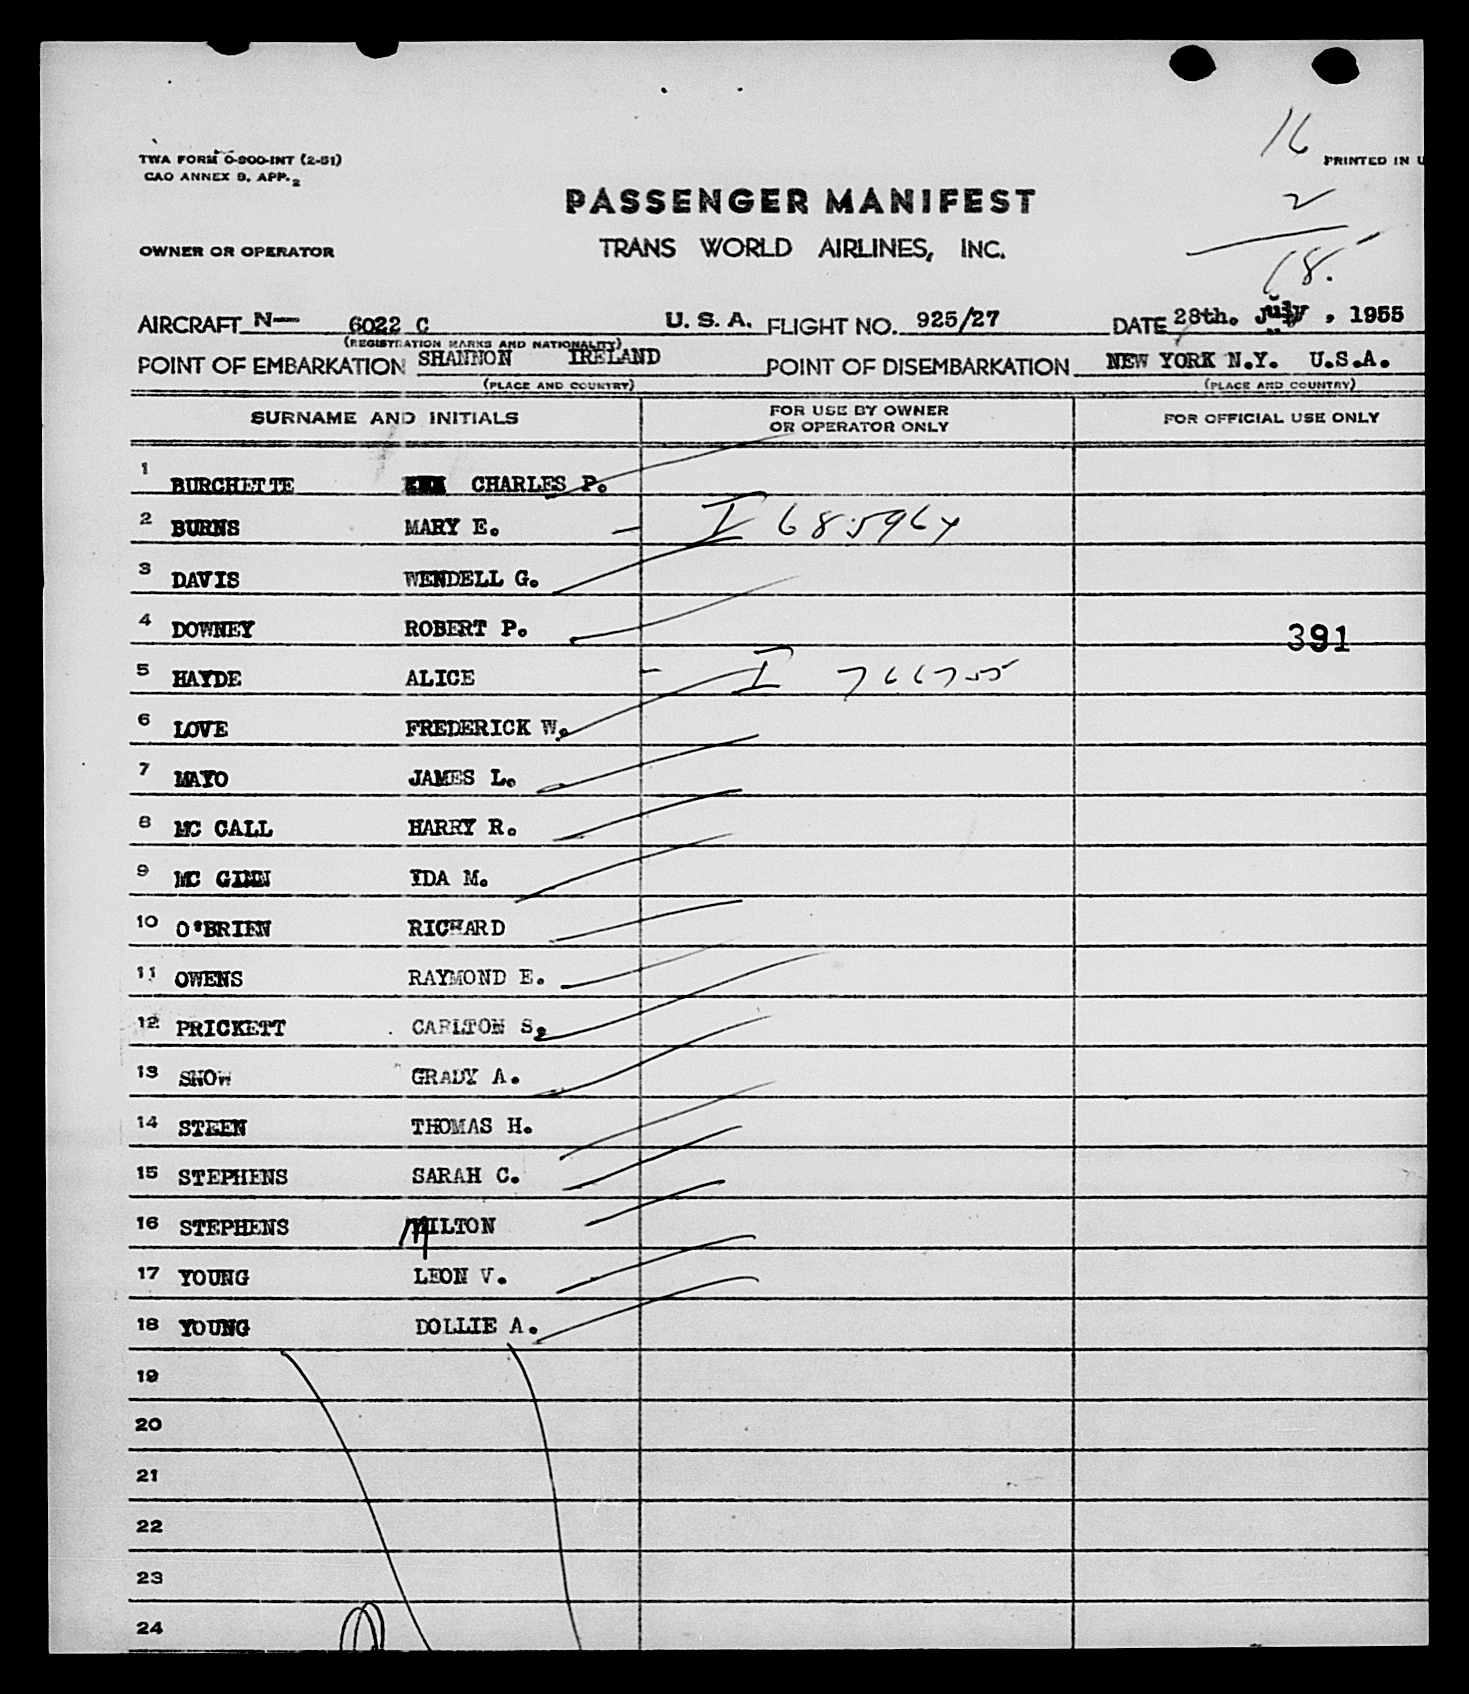 16
TWA FORM O-900-INT (2-51)
PRINTED IN U
CAO ANNEX 9, APP. 2
2
PASSENGER MANIFEST
OWNER OR OPERATOR TRANS WORLD AIRLINES, INC.
18.
AIRCRAFT N— 6022 C U. S. A. FLIGHT NO. 925/27 DATE 28th. July , 1955
(REGISTRATION MARKS AND NATIONALITY)
POINT OF EMBARKATION SHANNON IRELAND POINT OF DISEMBARKATION NEW YORK N.Y. U.S.A.
(PLACE AND COUNTRY) (PLACE AND COUNTRY)
SURNAME AND INITIALS FOR USE BY OWNER OR OPERATOR ONLY FOR OFFICIAL USE ONLY
1 BURCHETTE CHARLES P.
2 BURNS MARY E. — I 685964
3 DAVIS WENDELL G.
4 DOWNEY ROBERT P. 391
5 HAYDE ALICE - I 766755
6 LOVE FREDERICK W.
7 MAYO JAMES L.
8 MC CALL HARRY R.
9 MC GINN IDA M.
10 O'BRIEN RICHARD
11 OWENS RAYMOND E.
12 PRICKETT CARLTON S.
13 SNOW GRADY A.
14 STEEN THOMAS H.
15 STEPHENS SARAH C.
16 STEPHENS MILTON
17 YOUNG LEON V.
18 YOUNG DOLLIE A.
19
20
21
22
23
24